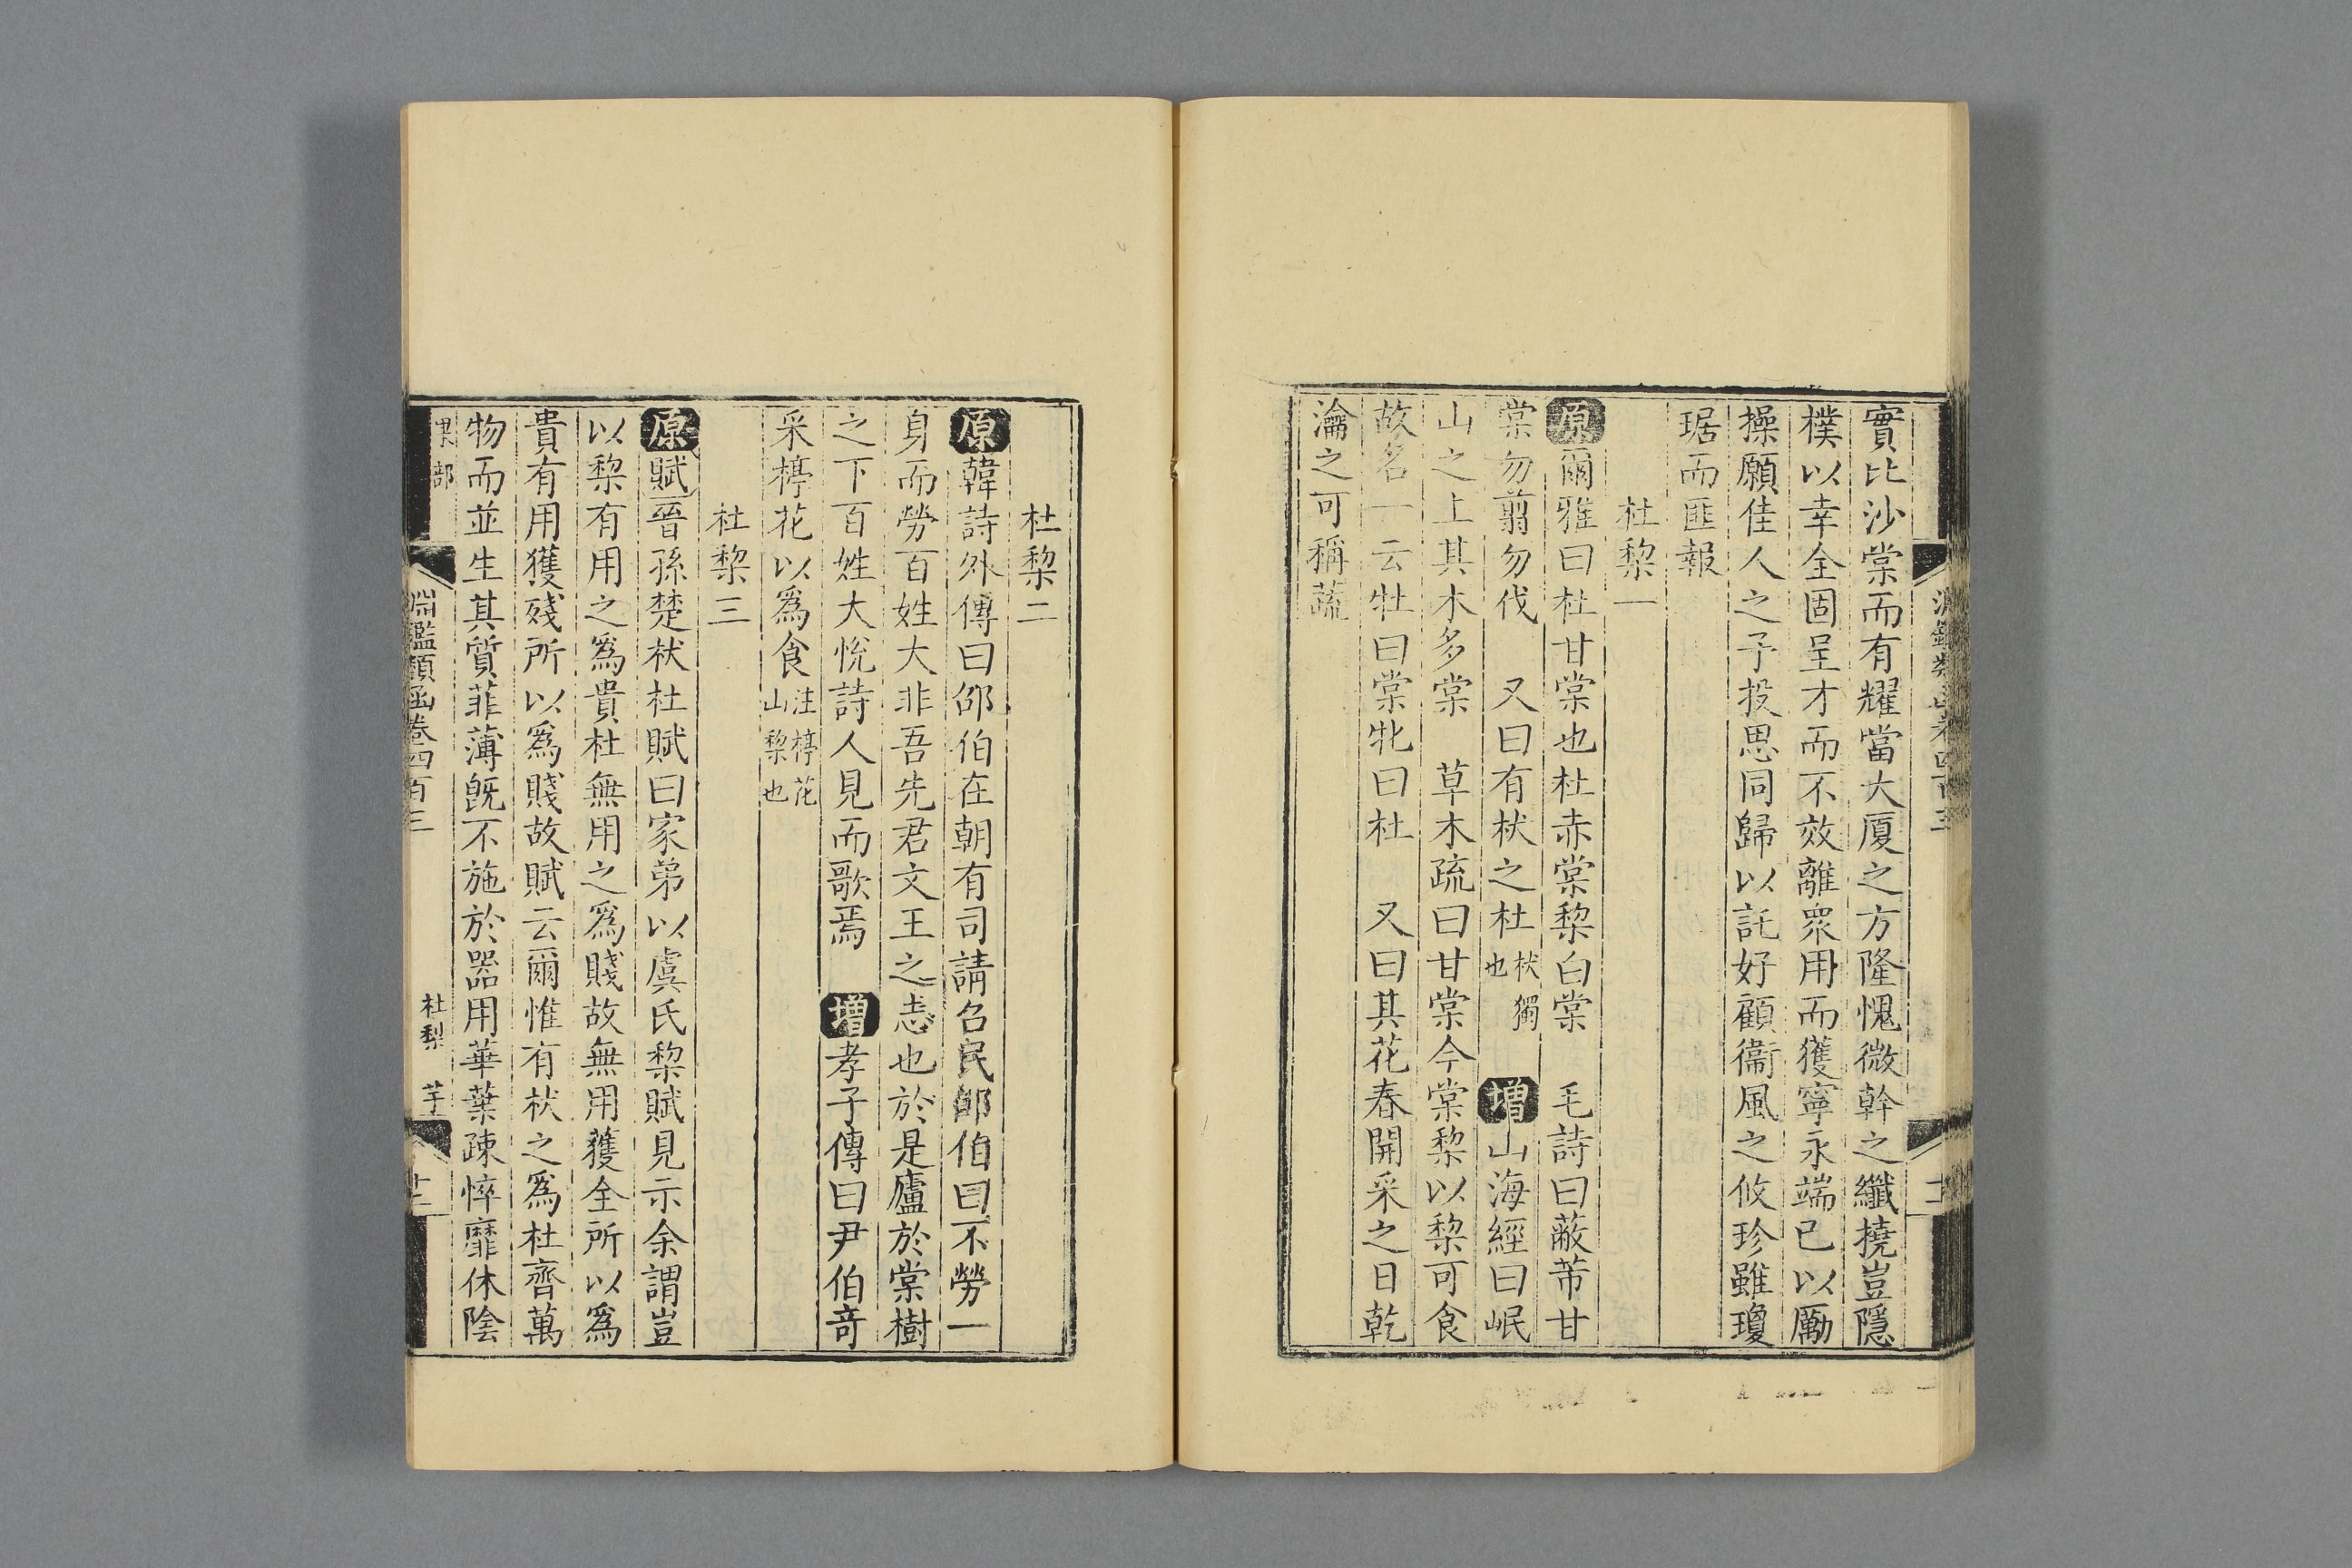 實比沙棠而有耀當大厦之方隆愧微幹之纖撓豈隱
樸以幸全固呈才而不效離衆用而獲寧永端已以勵
操願佳人之予投思同歸以託好顧衞風之攸珍雖瓊
琚而匪報
杜棃一
原爾雅曰杜甘棠也杜赤棠棃白棠　毛詩曰蔽芾甘
棠勿翦勿伐　又曰有杕之杜杕獨也　增山海經曰岷
山之上其木多棠　草木疏曰甘棠今棠棃以棃可食
故名一云牡曰棠牝曰杜　又曰其花春開采之日乾
瀹之可稱蔬
杜棃二
原韓詩外傳曰邵伯在朝有司請召民邵伯曰不勞一
身而勞百姓大非吾先君文王之志也於是廬於棠樹
之下百姓大悅詩人見而歌焉　增孝子傳曰尹伯竒
采楟花以爲食注楟花山棃也
杜棃三
原賦晉孫楚杕杜賦曰家弟以虞氏棃賦見示余謂豈
以棃有用之爲貴杜無用之爲賤故無用獲全所以爲
貴有用獲殘所以爲賤故賦云爾惟有杕之爲杜齊萬
物而並生其質菲薄旣不施於器用華葉疎悴靡休陰
果部
淵鑑類函卷四百三
杜棃　芋